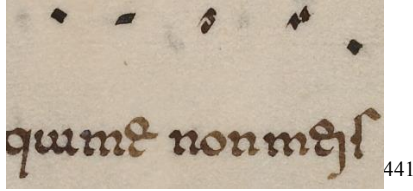 quim& nonm&iſ
441